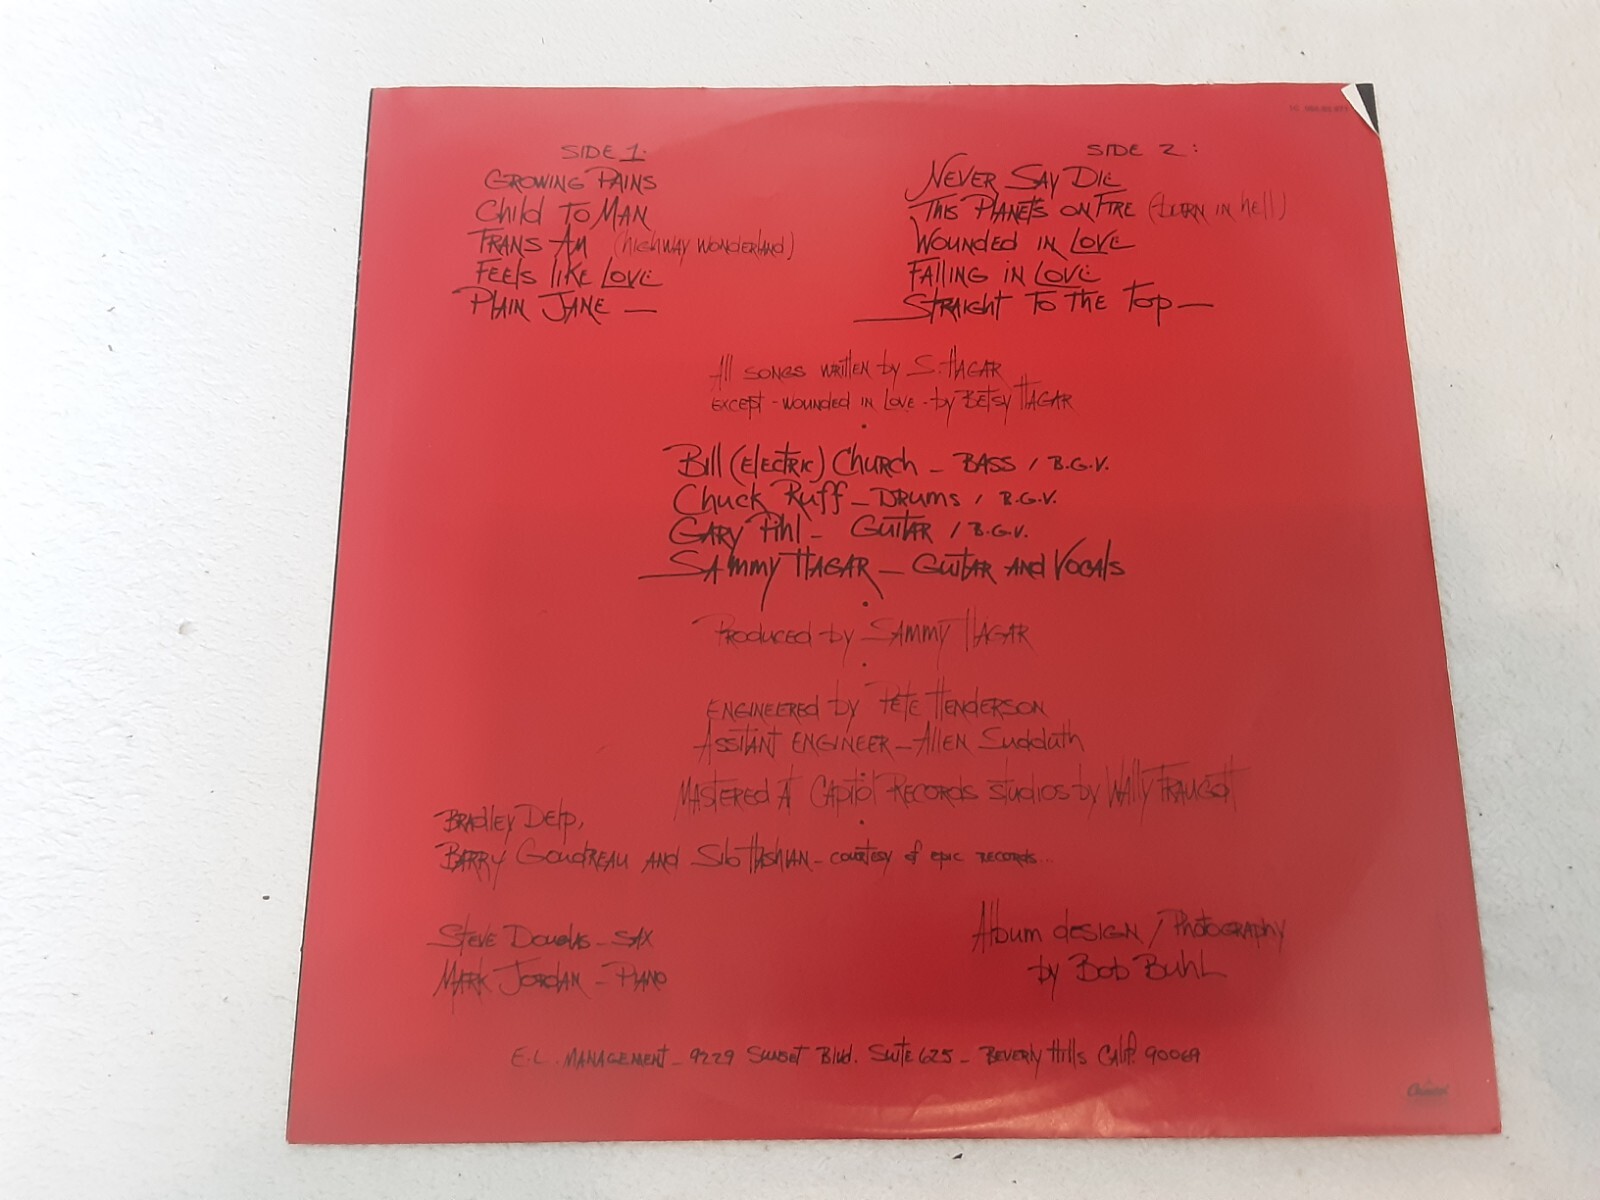 SIDE 1:
GROWING PAINS
Child To MAN
TRANS AM (highway wonderland)
FEEls liKE LOVE
PlAIN JANE —
SIDE 2:
NEVER SAY DIE
This PlANET'S ON FIRE (burn in hell)
WOUNDED IN LOVE
FAlliNG iN LOVE
STRAIGHT TO THE Top —
All SONGS WRITTEN by S. HAGAR
EXCEPT - WOUNDED IN LOVE - by BETSY HAGAR
Bill (ElECTRIC) Church — BASS / B.G.V.
Chuck Ruff — DRums / B.G.V.
GARY Pihl — GuitAR / B.G.V.
SAmmy HAGAR — GuitAR AND VocAls
Produced by SAMMY HAGAR
ENGINEERED by PETE HENDERSON
ASSITANT ENGINEER — AllEN Sudduth
MASTERED AT CApitol RECORDS studios by WAlly TRAUGOTT
BRADlEY DElp,
BARRY GOUDREAU AND Sib HASHIAN — COURTESY of EPIC RECORDS...
STEVE DOUGlAS — SAX
MARK JORDAN — PIANO
Album dESIGN / PhotoGRAPHY
by Bob BuhL
E.L. MANAGEMENT — 9229 SUNSET Blvd. SuitE 625 — BEVERly Hills CAlif. 90069
Capitol